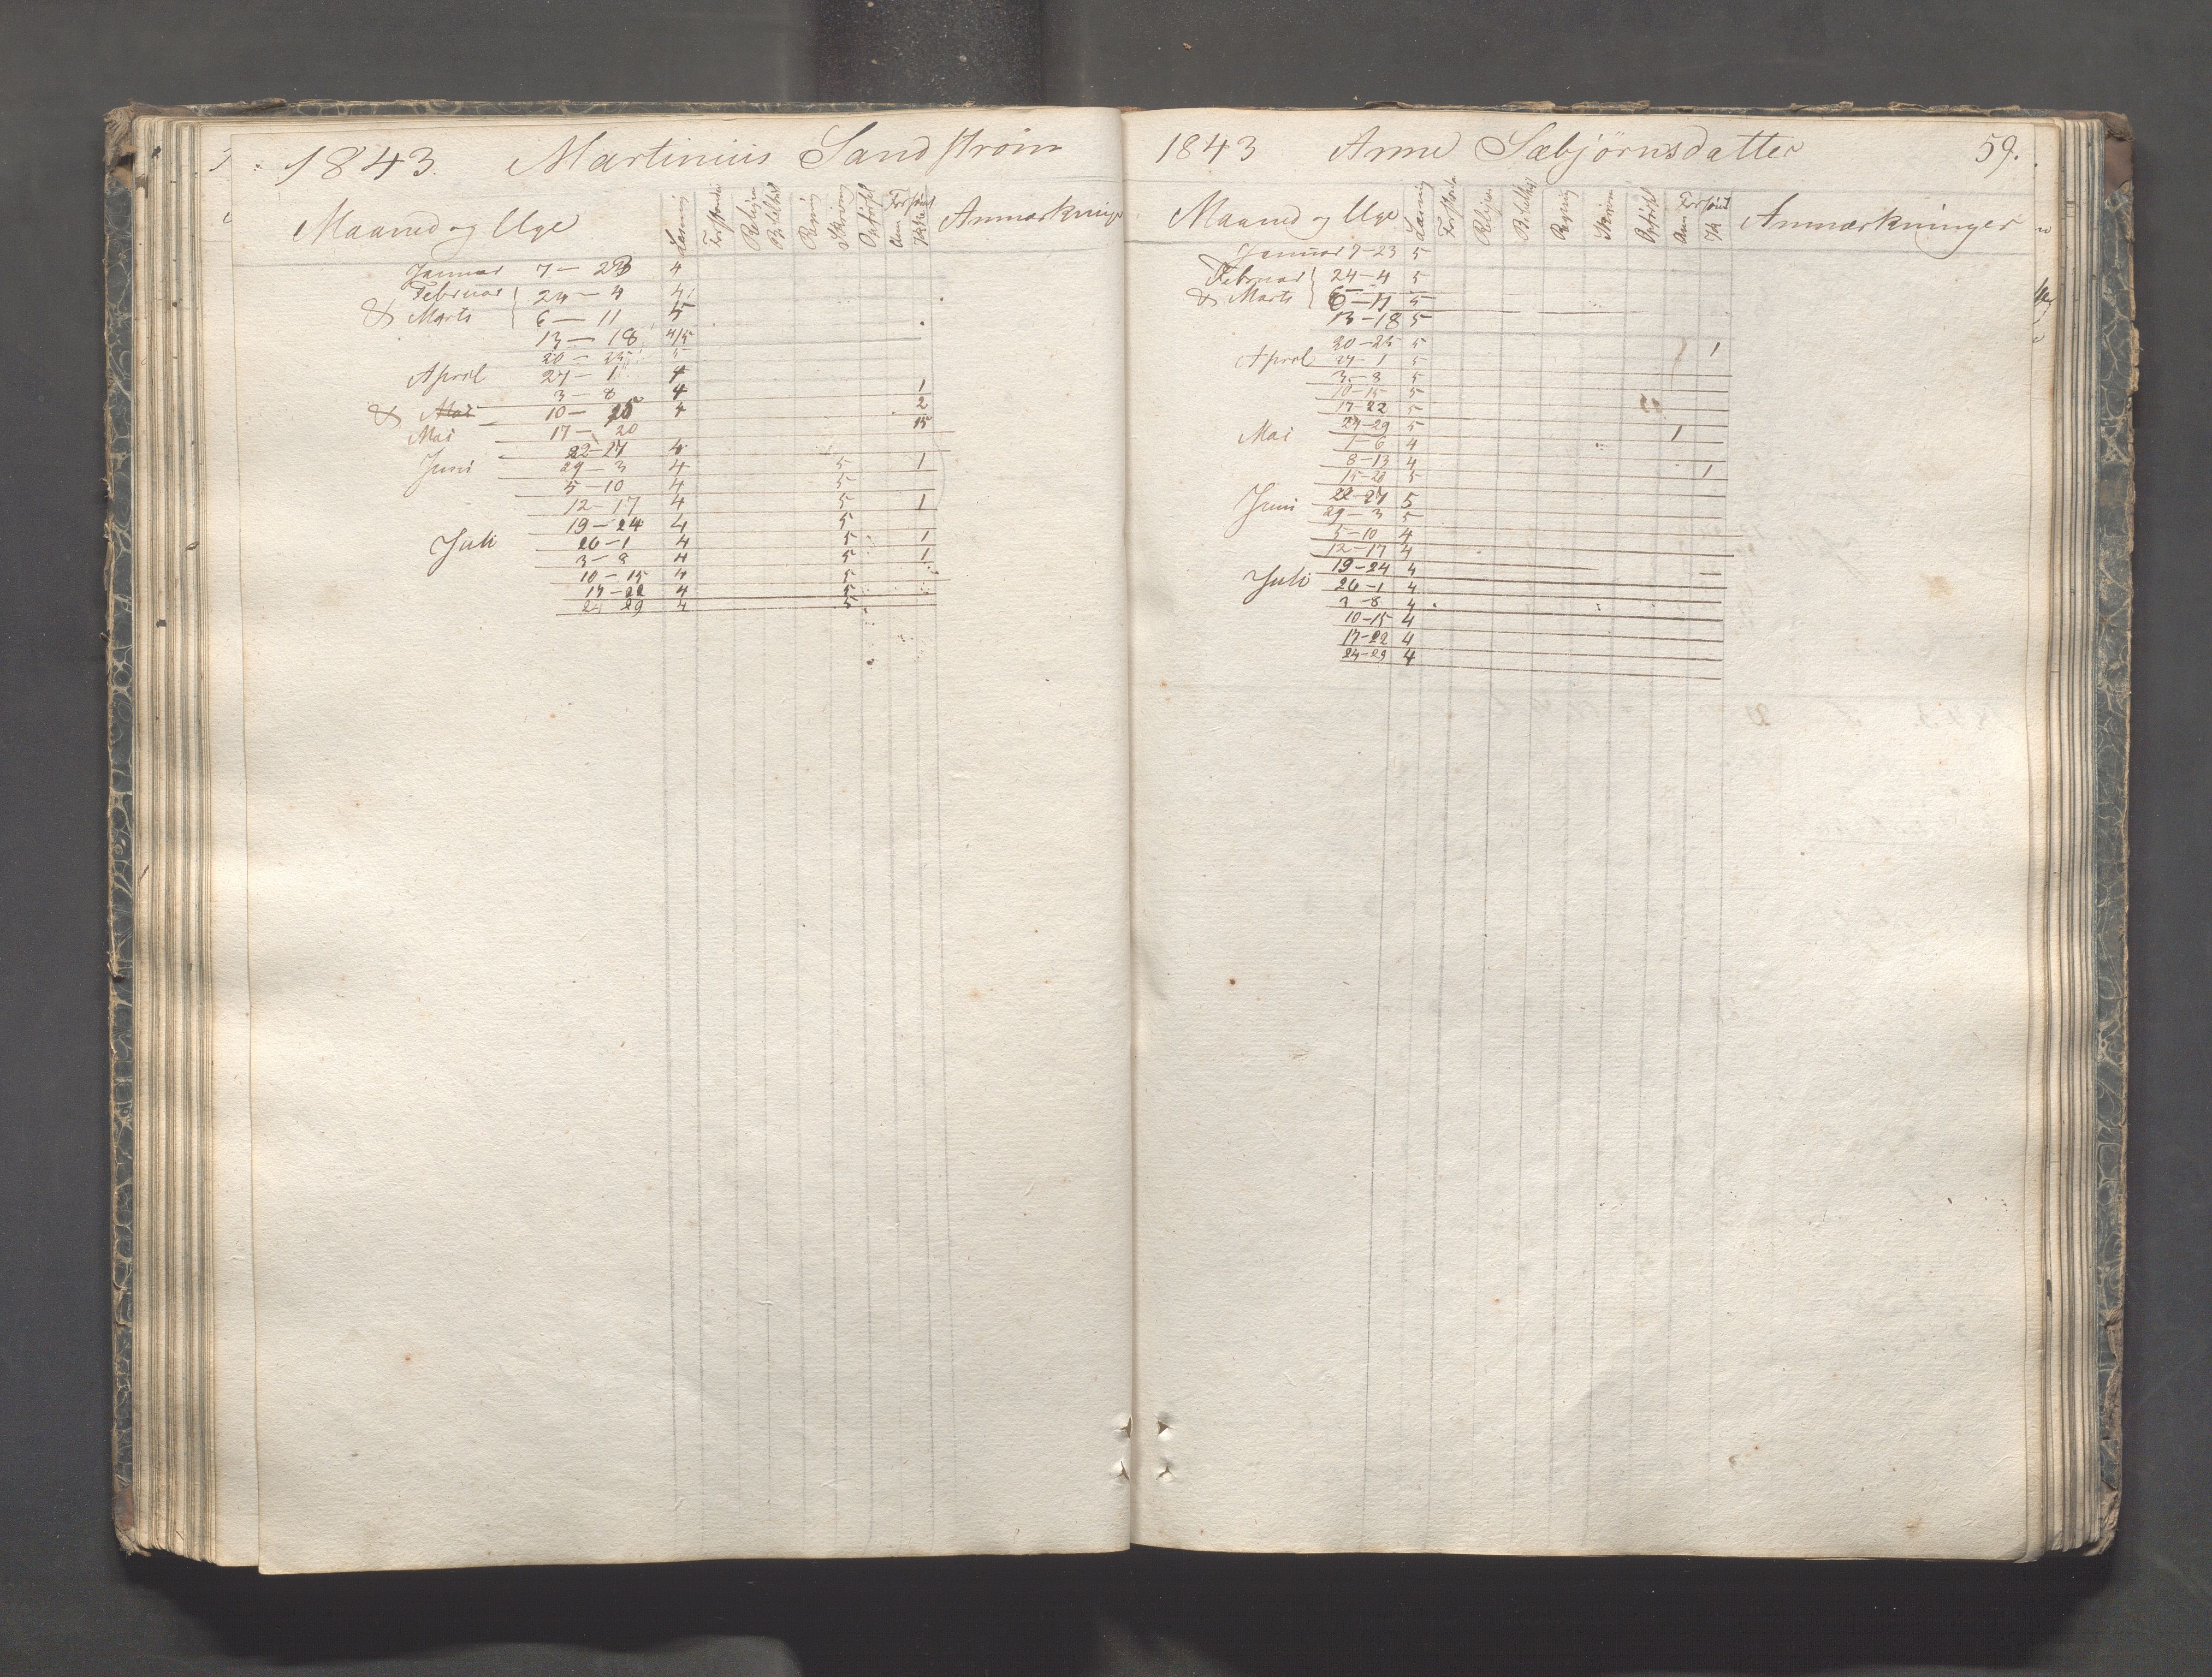 1843. Martinius Sandstrøm
Maaned og Uge Læsning Forstand Religion Bibelhist Regning Skrivning Opførsel Forsømt Anm Ikke Anmærkninger
Januar 7 — 23 4
Februar 24 — 4 4
& Marts 6 — 11 5
13 — 18 4/5
20 — 25 5
April 27 — 1 4
3 — 8 4 1
& Mai 10 — 15 4 2
Mai 17 — 20 15
22-27 4
Juni 29 — 3 4 5 1
5 — 10 4 5
12 — 17 4 5 1
19 — 24 4 5
Juli 26 — 1 4 5 1
3 — 8 4 5 1
10 — 15 4 5
17 — 22 4 5
24 29 4 5
1843 Anne Sæbjørnsdatter 59.
Maaned og Uge Læsning Forstand Religion Bibelhist Regning Skrivn Opførsel Forsømt Anm Ik Anmærkninger
Januar 7-23 5
Februar 24-4 5
& Marts 6-11 5
13-18 5
20-25 5 1
April 27-1 5
3-8 5
10-15 5
17-22 5
24-29 5
Mai 1-6 4 1
8-13 4
15-20 5 1
22-27 5
Juni 29-3 5
5-10 4
12-17 4
19-24 4
Juli 26-1 4
3-8 4
10-15 4
17-22 4
24-29 4